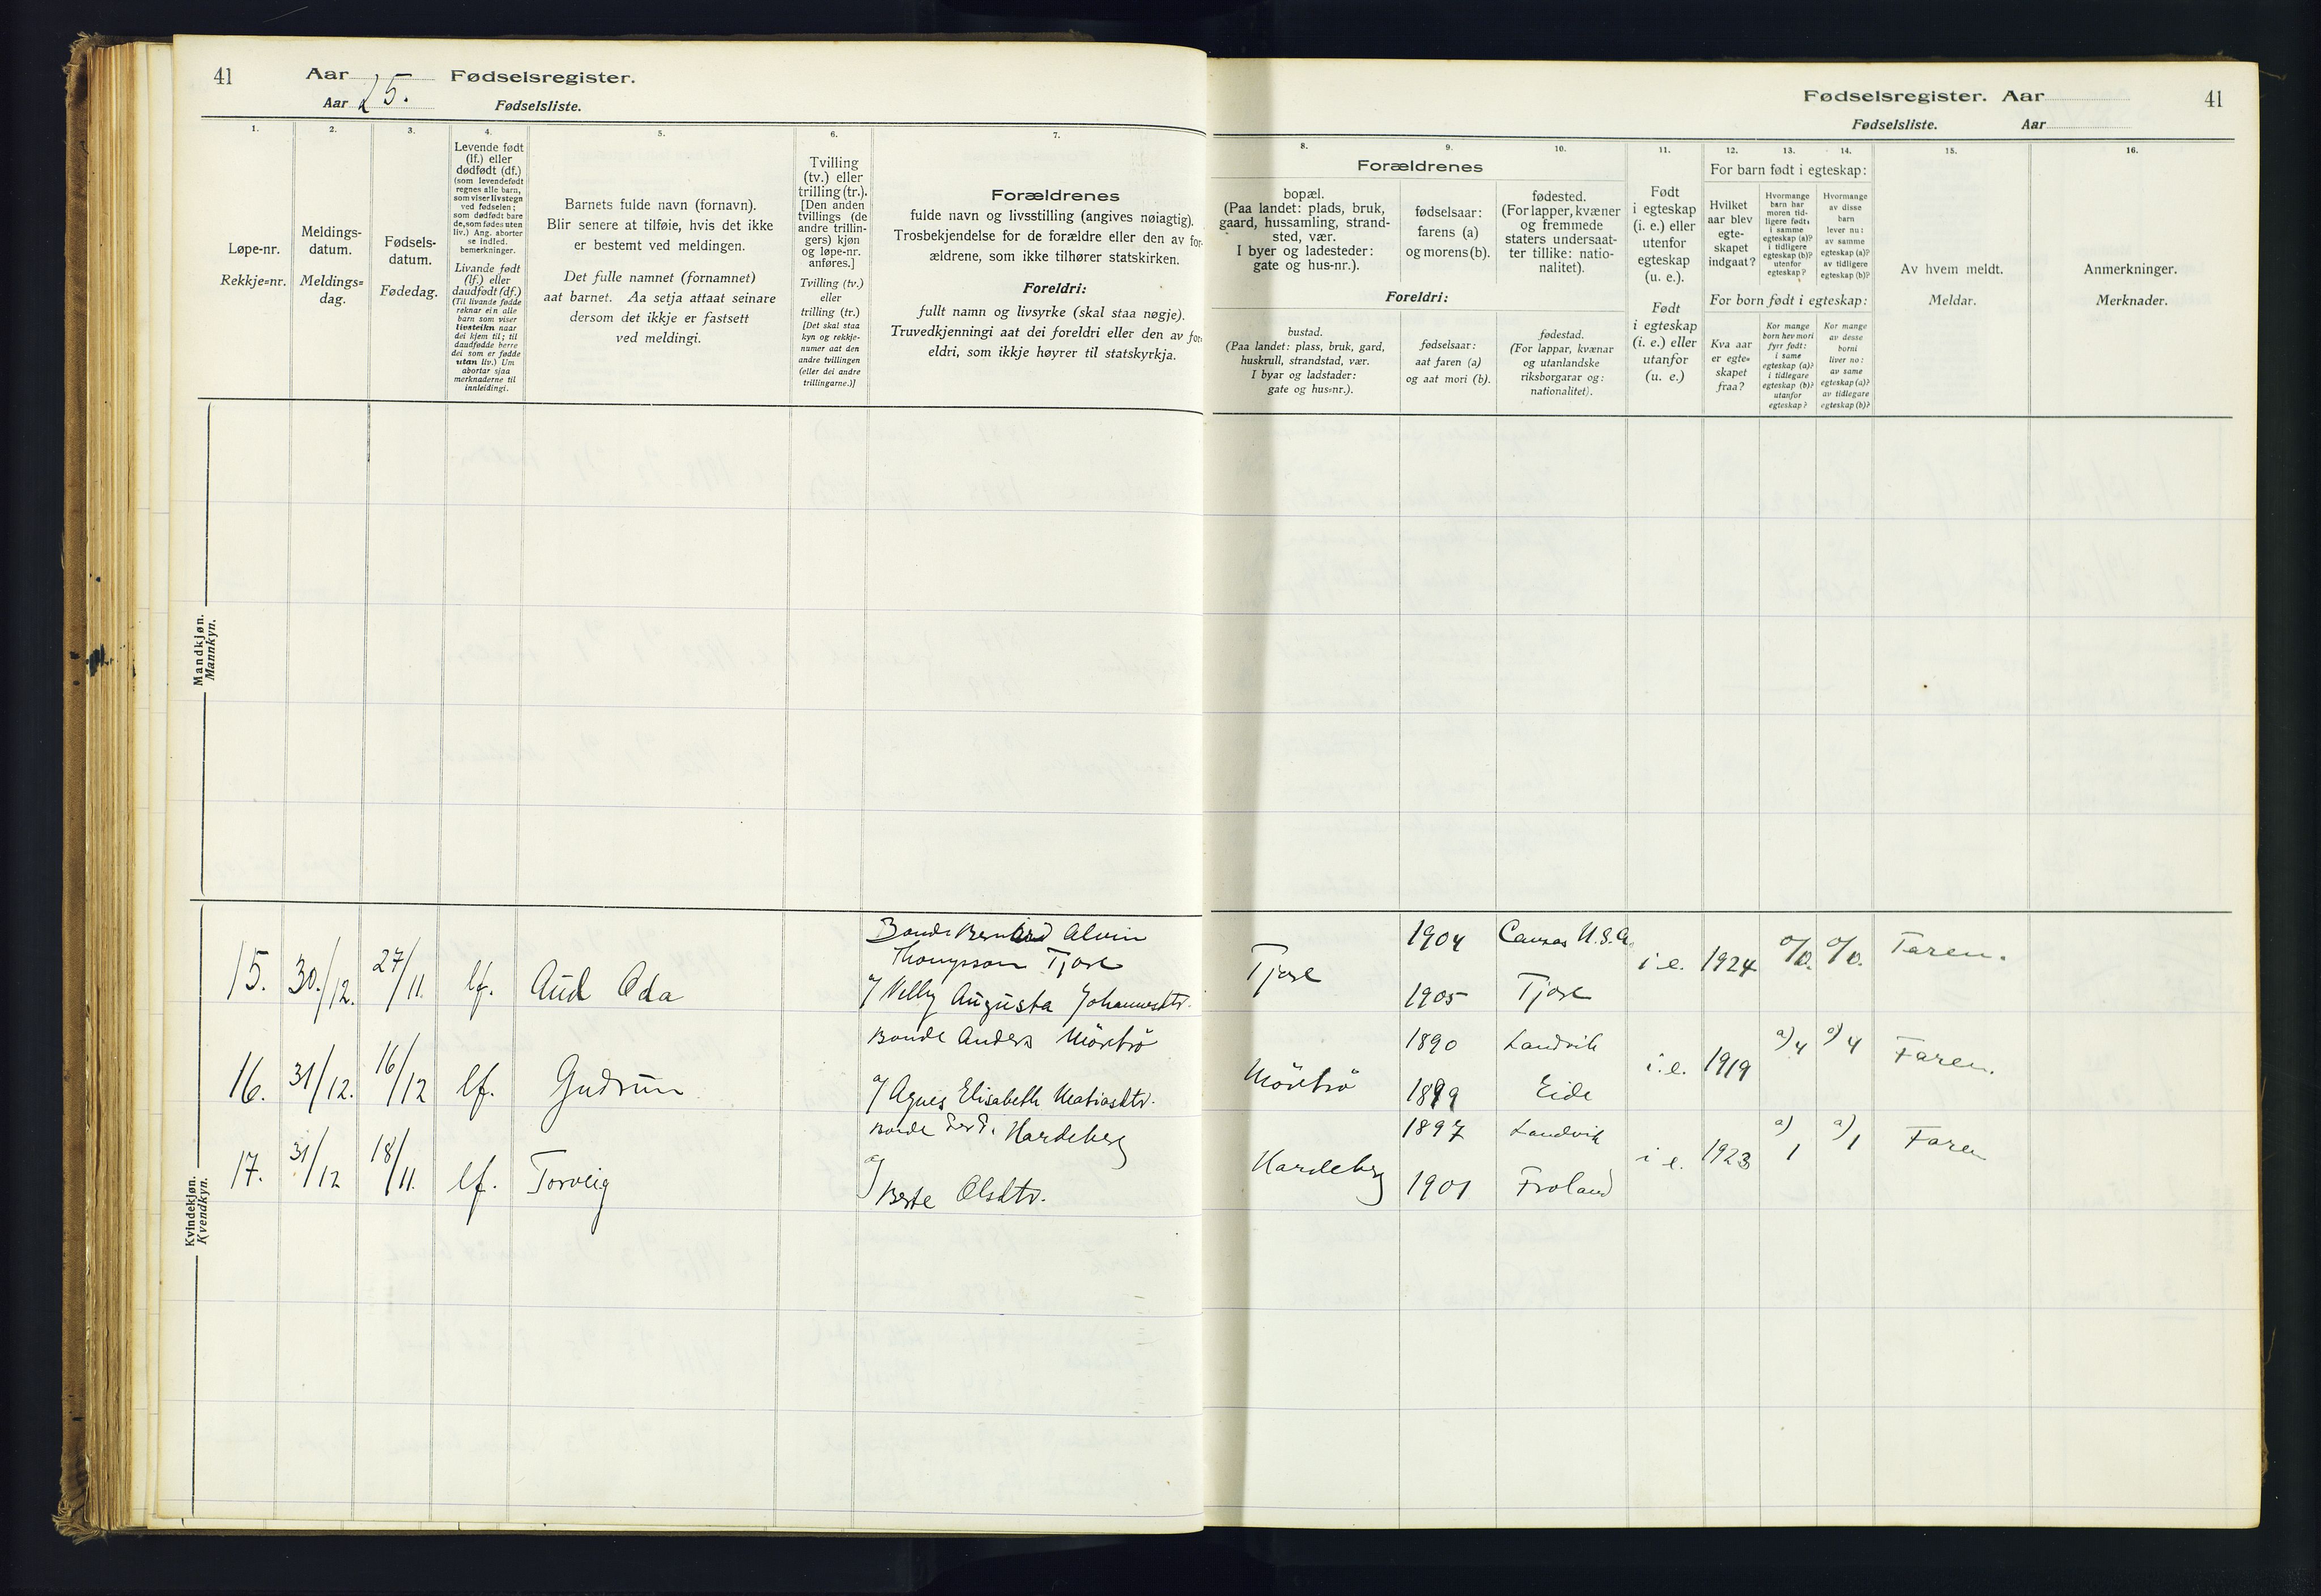 41
Aar 25. Fødselsregister.
Aar Fødselsliste.
1.
Løpe-nr.
Rekkje=nr.
2.
Meldings-
datum.
Meldings=
dag.
3.
Fødsels-
datum.
Fødedag.
4.
Levende født
(lf.) eller
dødfødt (df.)
(som levendefødt
regnes alle barn,
som viser livstegn
ved fødselen;
som dødfødt bare
de, som fødes uten
liv.) Ang. aborter
se indled.
bemerkninger.
Livande født
(lf.) eller
daudfødt (df.)
(Til livande fødde
reknar ein alle
barn som viser
livsteikn naar
dei kjem til; til
daudfødde berre
dei som er fødde
utan liv.) Um
abortar sjaa
merknaderne til
innleidingi.
5.
Barnets fulde navn (fornavn).
Blir senere at tilføie, hvis det ikke
er bestemt ved meldingen.
Det fulle namnet (fornamnet)
aat barnet. Aa setja attaat seinare
dersom det ikkje er fastsett
ved meldingi.
6.
Tvilling
(tv.) eller
trilling (tr.).
[Den anden
tvillings (de
andre trillin-
gers) kjøn
og løpe-nr.
anføres.]
Tvilling (tv.)
eller
trilling (tr.)
[Det skal staa
kyn og rekkje-
numer aat den
andre tvillingen
(eller dei andre
trillingarne.)]
7.
Forældrenes
fulde navn og livsstilling (angives nøiagtig).
Trosbekjendelse for de forældre eller den av for-
ældrene, som ikke tilhører statskirken.
Foreldri:
fullt namn og livsyrke (skal staa nøgje).
Truvedkjenningi aat dei foreldri eller den av for-
eldri, som ikkje høyrer til statskyrkja.
Fødselsregister. Aar
Fødselsliste. Aar
41
8.
9.
10.
Forældrenes
bopæl.
(Paa landet: plads, bruk,
gaard, hussamling, strand-
sted, vær.
I byer og ladesteder:
gate og hus-nr.).
fødselsaar:
farens (a)
og morens (b).
fødested.
(For lapper, kvæner
og fremmede
staters undersaat-
ter tillike: natio-
nalitet).
Foreldri:
bustad.
(Paa landet: plass, bruk, gard,
huskrull, strandstad, vær.
I byar og ladstader:
gate og hus=nr.).
fødselsaar:
aat faren (a)
og aat mori (b).
fødestad.
(For lappar, kvænar
og utanlandske
riksborgarar og:
nationalitet).
11.
Født
i egteskap
(i. e.) eller
utenfor
egteskap
(u. e.).
Født
i egteskap
(i. e.) eller
utanfor
(u. e.)
12.
13.
14.
For barn født i egteskap:
Hvilket
aar blev
egte-
skapet
indgaat?
Hvormange
barn har
moren tid-
ligere født:
i samme
egteskap (a)?
i tidligere
egteskap (b)?
utenfor
egteskap?
Hvormange
av disse
barn
lever nu:
av samme
egteskap (a)?
av tidligere
egteskap (b)?
For born født i egteskap:
Kva aar
er egte=
skapet
fraa?
Kor mange
born hev mori
fyrr født:
i same
egteskap (a)?
i tidlegare
egteskap (b)?
utanfor
egteskap?
Kor mange
av desse
borni
liver no:
av same
egteskap (a)?
av tidlegare
egteskap (b)?
15.
Av hvem meldt.
Meldar.
16.
Anmerkninger.
Merknader.
Mandkjøn.
Mannkyn.
Kvindekjøn.
Kvendkyn.
15. 30./12. 27/11. lf. Aud Oda
Bonde Bernhard Alvin
Thompsson Tjore
og Nelly Augusta Johannesdtr.
Tjore
1904 Canzas U.S.A.
1905 Tjore
i e. 1924 0/0. 0/0. Faren.
16. 31/12. 16/12 lf. Gudrun
Bonde Anders Mörebrö
og Agnes Elisabeth Matiasdtr.
Mörebrö
1890 Landvik
1899 Eide
i. e. 1919 a) 4 a) 4 Faren.
17. 31/12 18/11. lf. Torveig
Bonde Ferd. Hardeberg
og
Berte Olsdtr.
Hardeberg
1897 Landvik
1901 Froland
i e. 1923 a) 1 a) 1 Faren